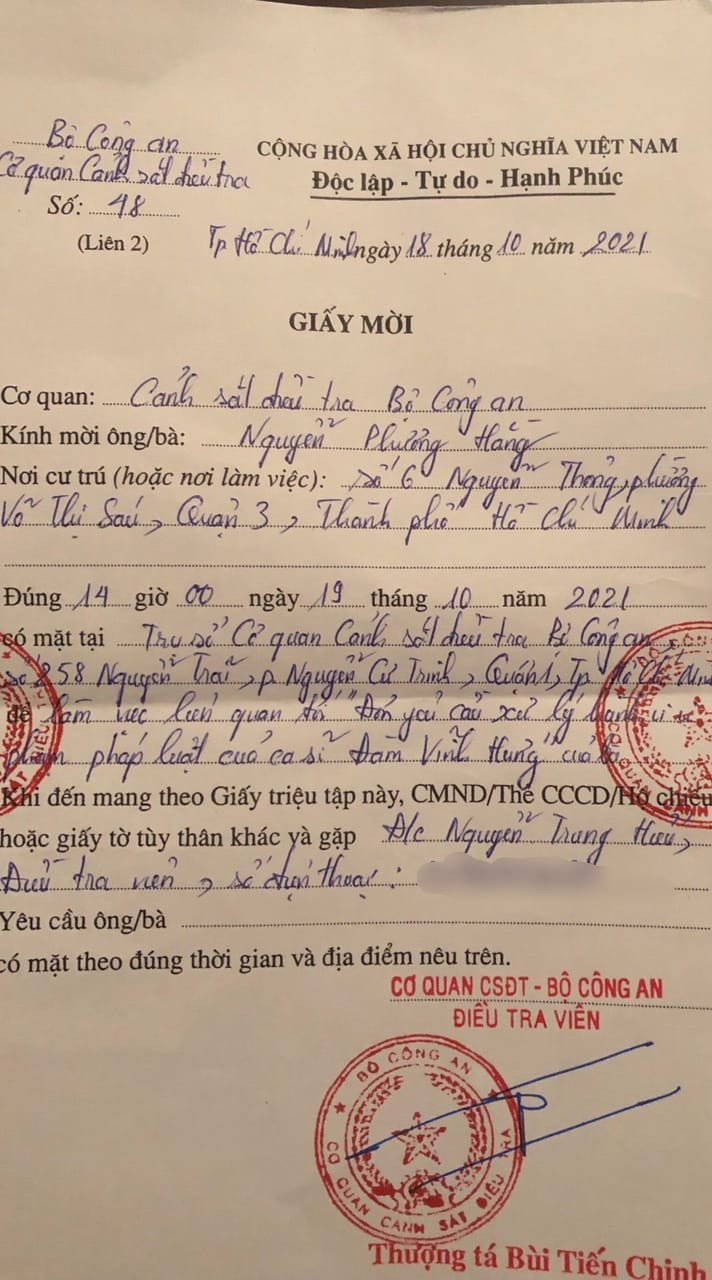 Bộ Công an
CỘNG HÒA XÃ HỘI CHỦ NGHĨA VIỆT NAM
Cơ quan Cảnh sát điều tra
Độc lập - Tự do - Hạnh Phúc
Số: 48
(Liên 2)
Tp Hồ Chí Minh ngày 18 tháng 10 năm 2021
GIẤY MỜI
Cơ quan: Cảnh sát điều tra Bộ Công an
Kính mời ông/bà: Nguyễn Phương Hằng
Nơi cư trú (hoặc nơi làm việc): Số 6 Nguyễn Thông, phường
Võ Thị Sáu, Quận 3, Thành phố Hồ Chí Minh
Đúng 14 giờ 00 ngày 19 tháng 10 năm 2021
có mặt tại Trụ sở Cơ quan Cảnh sát điều tra Bộ Công an,
số 258 Nguyễn Trãi, p. Nguyễn Cư Trinh, Quận 1, Tp Hồ Chí Minh
để làm việc liên quan tới "Đơn yêu cầu xử lý hành vi
phạm pháp luật của ca sĩ Đàm Vĩnh Hưng" của
Khi đến mang theo Giấy triệu tập này, CMND/Thẻ CCCD/Hộ chiếu
hoặc giấy tờ tùy thân khác và gặp Đ/c Nguyễn Trung Hiếu,
Điều tra viên, số điện thoại:
Yêu cầu ông/bà
có mặt theo đúng thời gian và địa điểm nêu trên.
CƠ QUAN CSĐT - BỘ CÔNG AN
ĐIỀU TRA VIÊN
BỘ CÔNG AN
CƠ QUAN CẢNH SÁT ĐIỀU TRA
Thượng tá Bùi Tiến Chinh